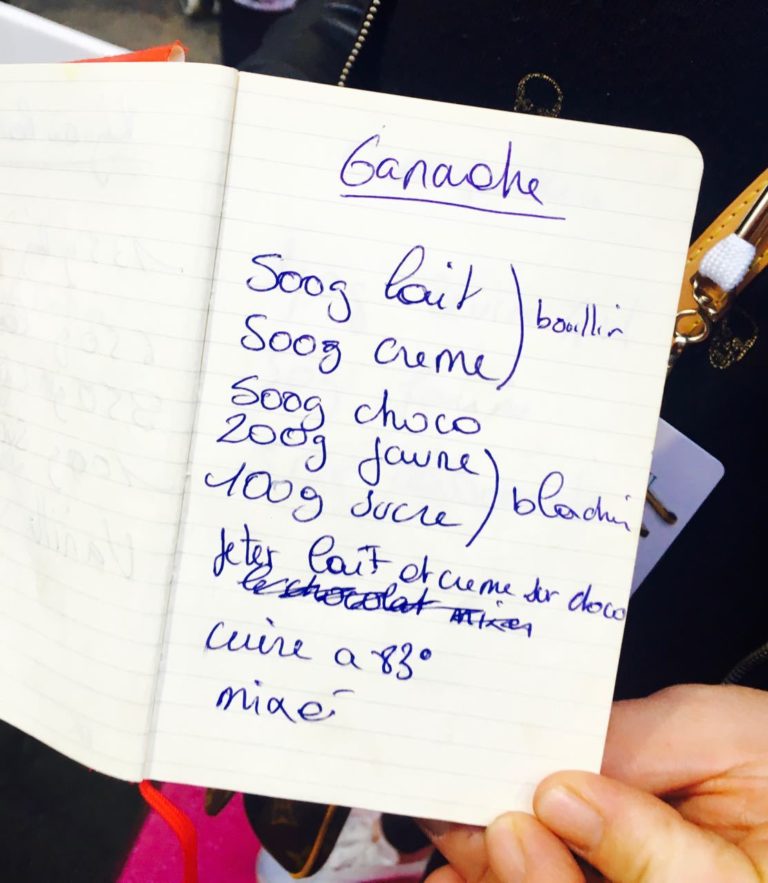 Ganache
500g lait
500g creme
bouillir
500g choco
200g jaune
100g sucre
blachir
jeter lait et creme sur choco
le chocolat mixer
cuire a 83°
mixé